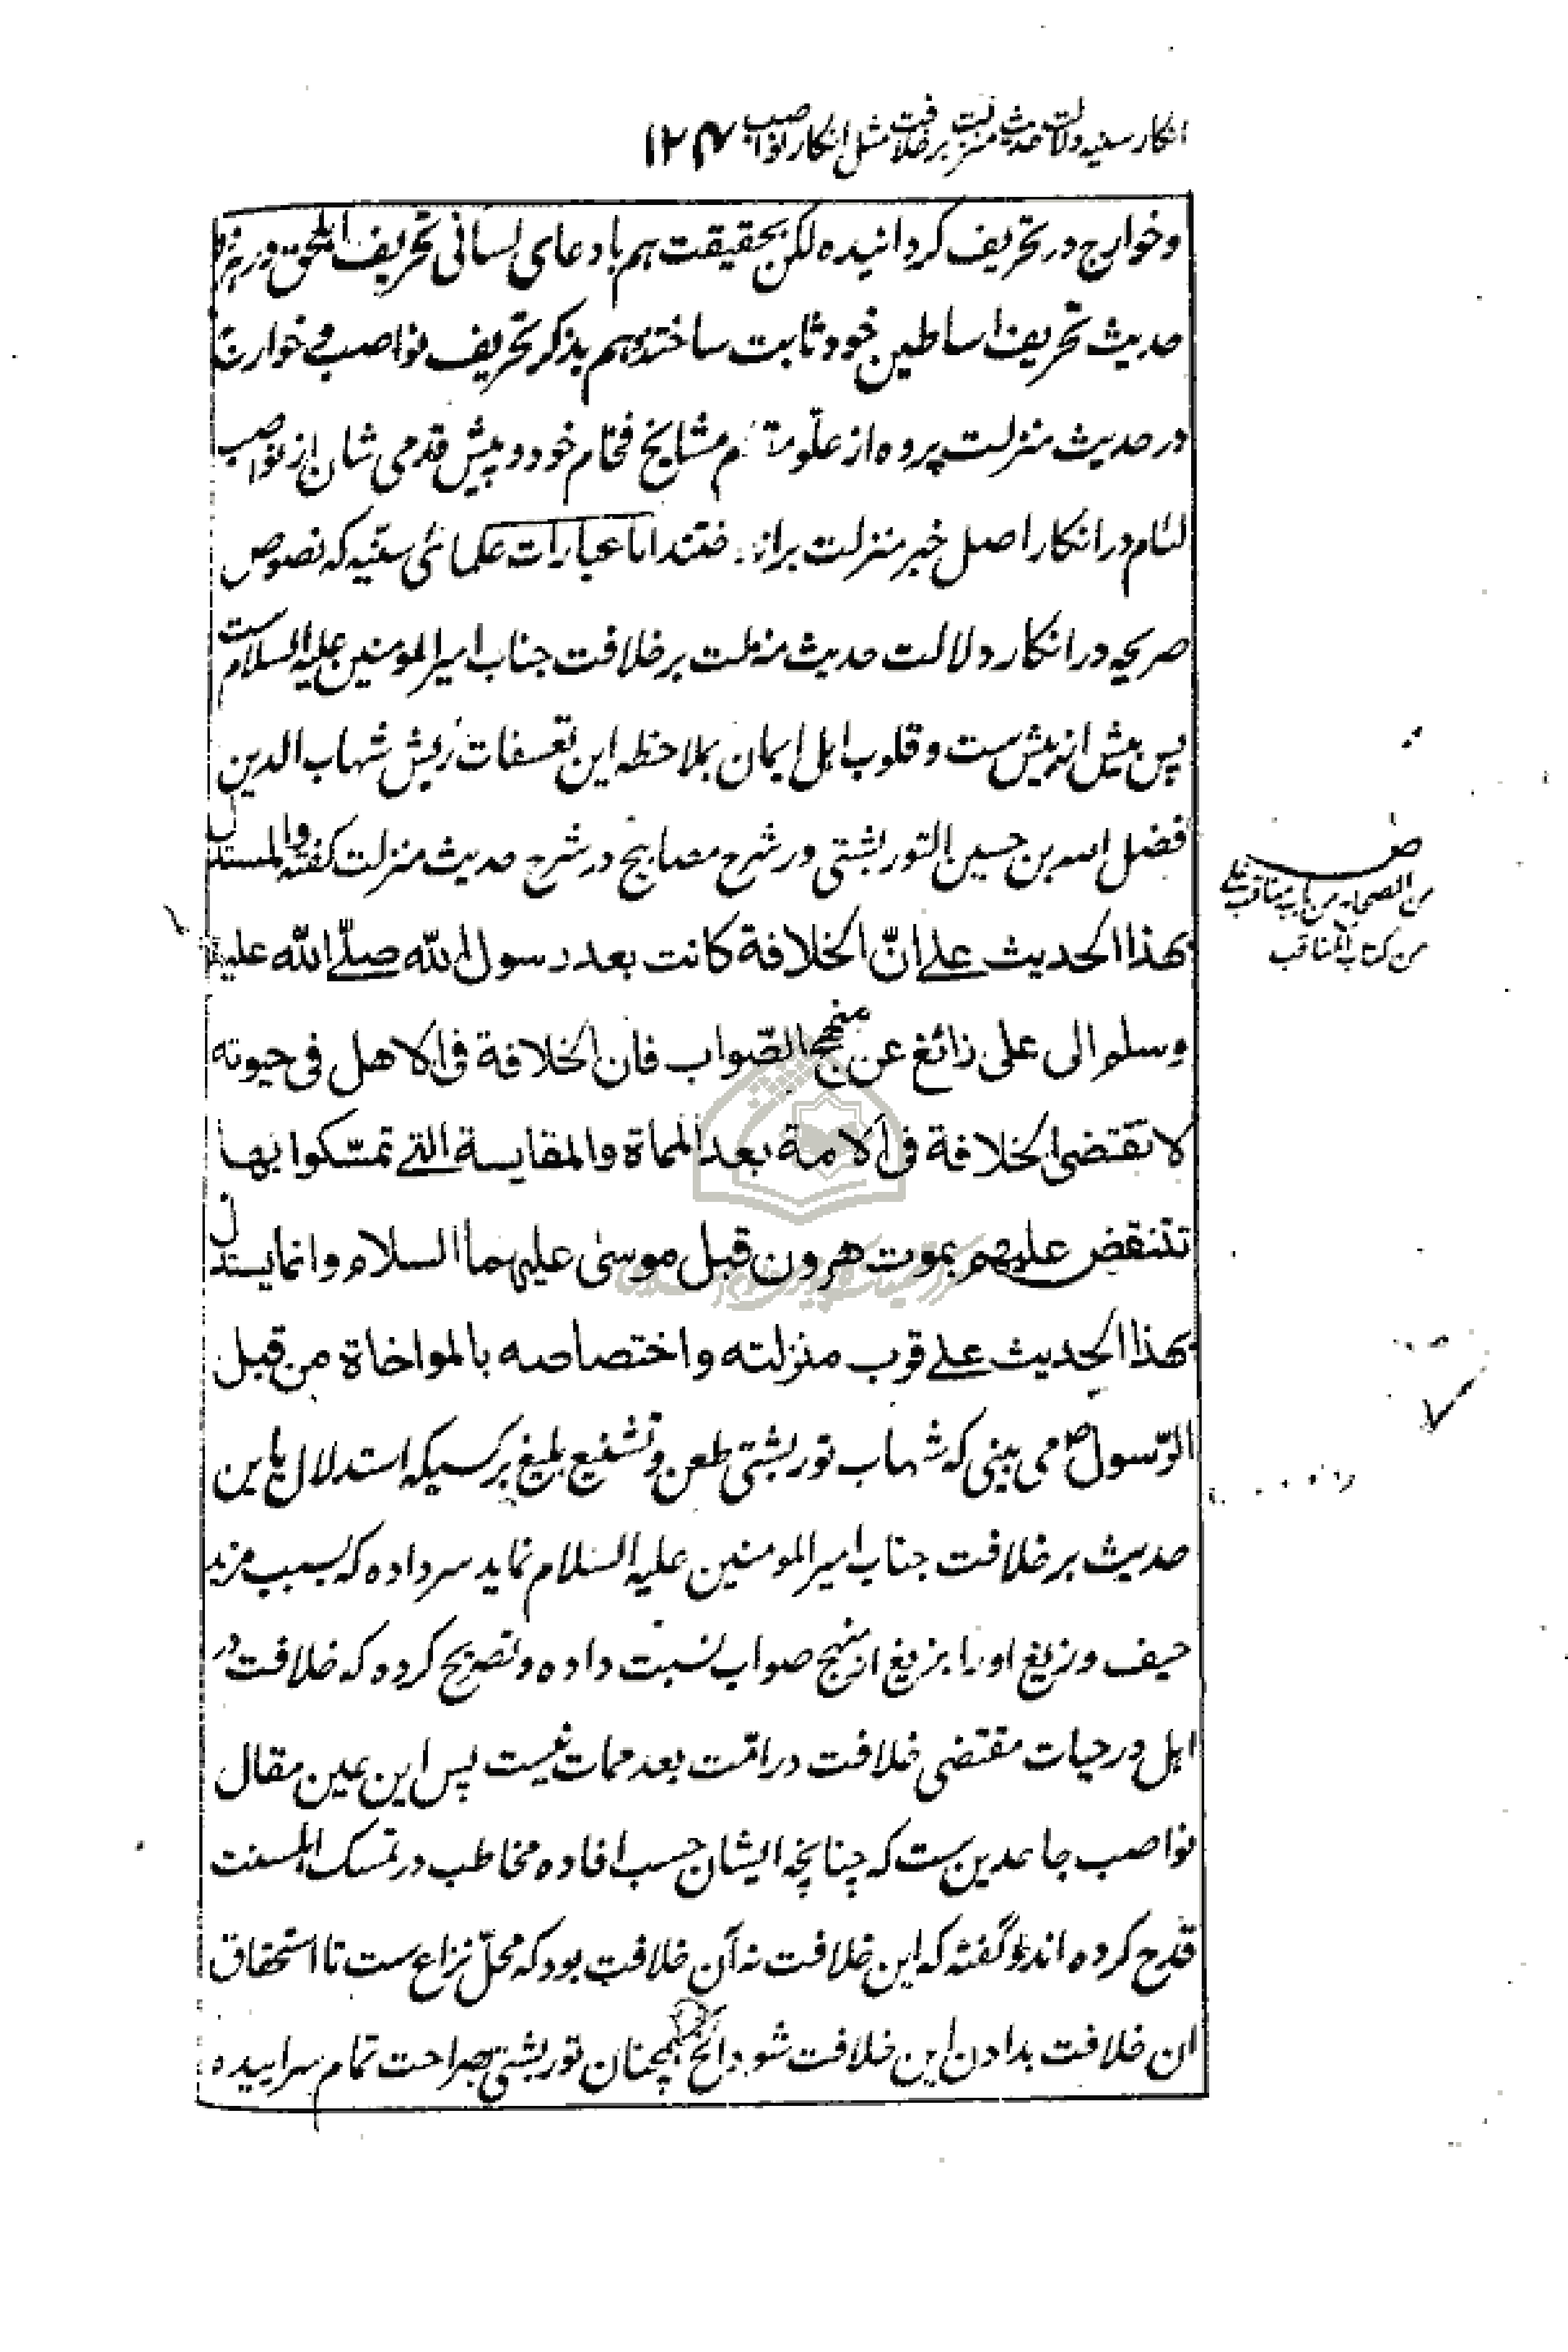 انکار سنیه دلالت حدیث منزلت بر خلافت مثل انکار نواصب ۱۲۴۷
و خوارج در تحریف گردانیده لکن بحقیقت هم بادعای لسانی تحریف اهل حق در
حدیث تحریف اساطین خود ثابت ساختند و هم بذکر تحریف نواصب و خوارج
در حدیث منزلت پرده از علو مشایخ فخام خود و پیش قدمی شان از نواصب
لئام در انکار اصل خبر منزلت اما عبارات علمای سنیه که نصوص
صریحه در انکار دلالت حدیث منزلت بر خلافت جناب امیر المومنین علیه السلام ست
پس بیش از بیش ست و قلوب اهل ایمان بملاحظه این تعسفات ریش شهاب الدین
فضل الله بن حسین التوربشتی در شرح مصابیح در شرح حدیث منزلت گفته والمستدل
بهذا الحدیث علی انّ الخلافة کانت بعد رسول الله صلّی الله علیه
وسلم الی علی زائغ عن منهج الصّواب فان الخلافة فی الاهل فی حیوته
لا تقتضی الخلافة فی الامة بعد المماة والمقایسة التی تمسّکوا بها
تنتقض علیهم بموت هرون قبل موسی علیهما السلام وانما یستدل
بهذا الحدیث علی قرب منزلته واختصاصه بالمواخاة من قبل
الرّسول ص می بینی که شهاب توربشتی طعن و تشنیع بلیغ بر کسیکه استدلال باین
حدیث بر خلافت جناب امیر المومنین علیه السلام نماید سر داده که بسبب مزید
حیف و زیغ او را بزیغ از منهج صواب نسبت داده و تصریح کرده که خلافت در
اهل در حیات مقتضی خلافت در امّت بعد ممات نیست پس این عین مقال
نواصب جاحدین ست که چنانچه ایشان حسب افاده مخاطب در تمسک اهلسنت
قدح کرده اند و گفته که این خلافت نه آن خلافت بود که محلّ نزاع ست تا استحقاق
ان خلافت بدادن این خلافت شود الخ همچنان توربشتی بصراحت تمام سراییده
من الصحاح من باب مناقب علی
من کتاب المناقب